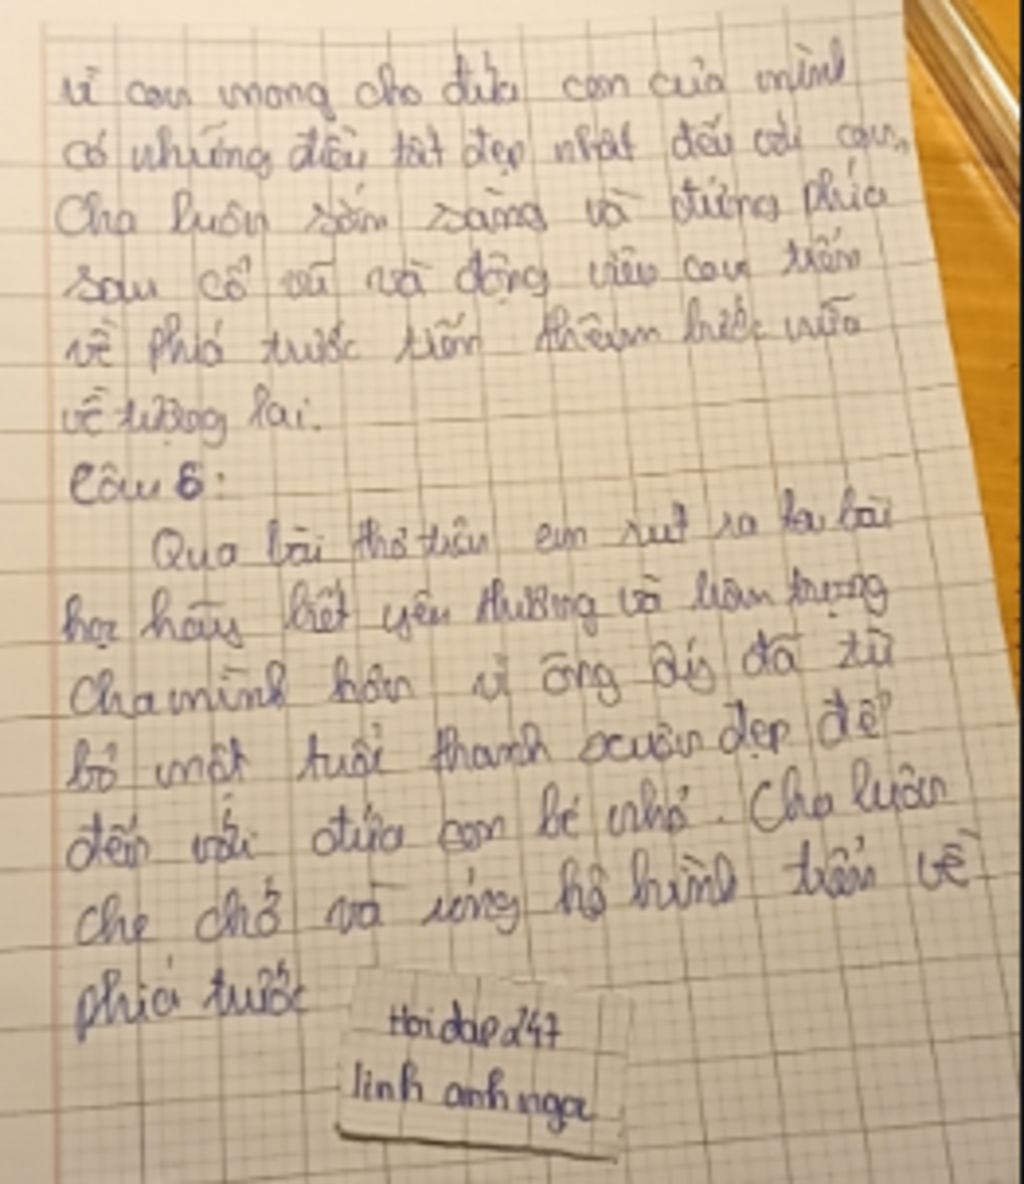 vì con mong cho đứa con của mình
có những điều tốt đẹp nhất đến với con,
Cha luôn sẵn sàng và đứng phía
sau cổ vũ và động viên con tiến
về phía trước tiến thêm bước nữa
về tương lai.
Câu 6:
Qua bài thơ trên em rút ra bài
học hãy biết yêu thương và trân trọng
cha mình hơn vì ông ấy đã từ
bỏ một tuổi thanh xuân đẹp để
đến với đứa con bé nhỏ. Cha luôn
che chở và ủng hộ mình tiến về
phía trước
Hoidap247
linh anh ngoc